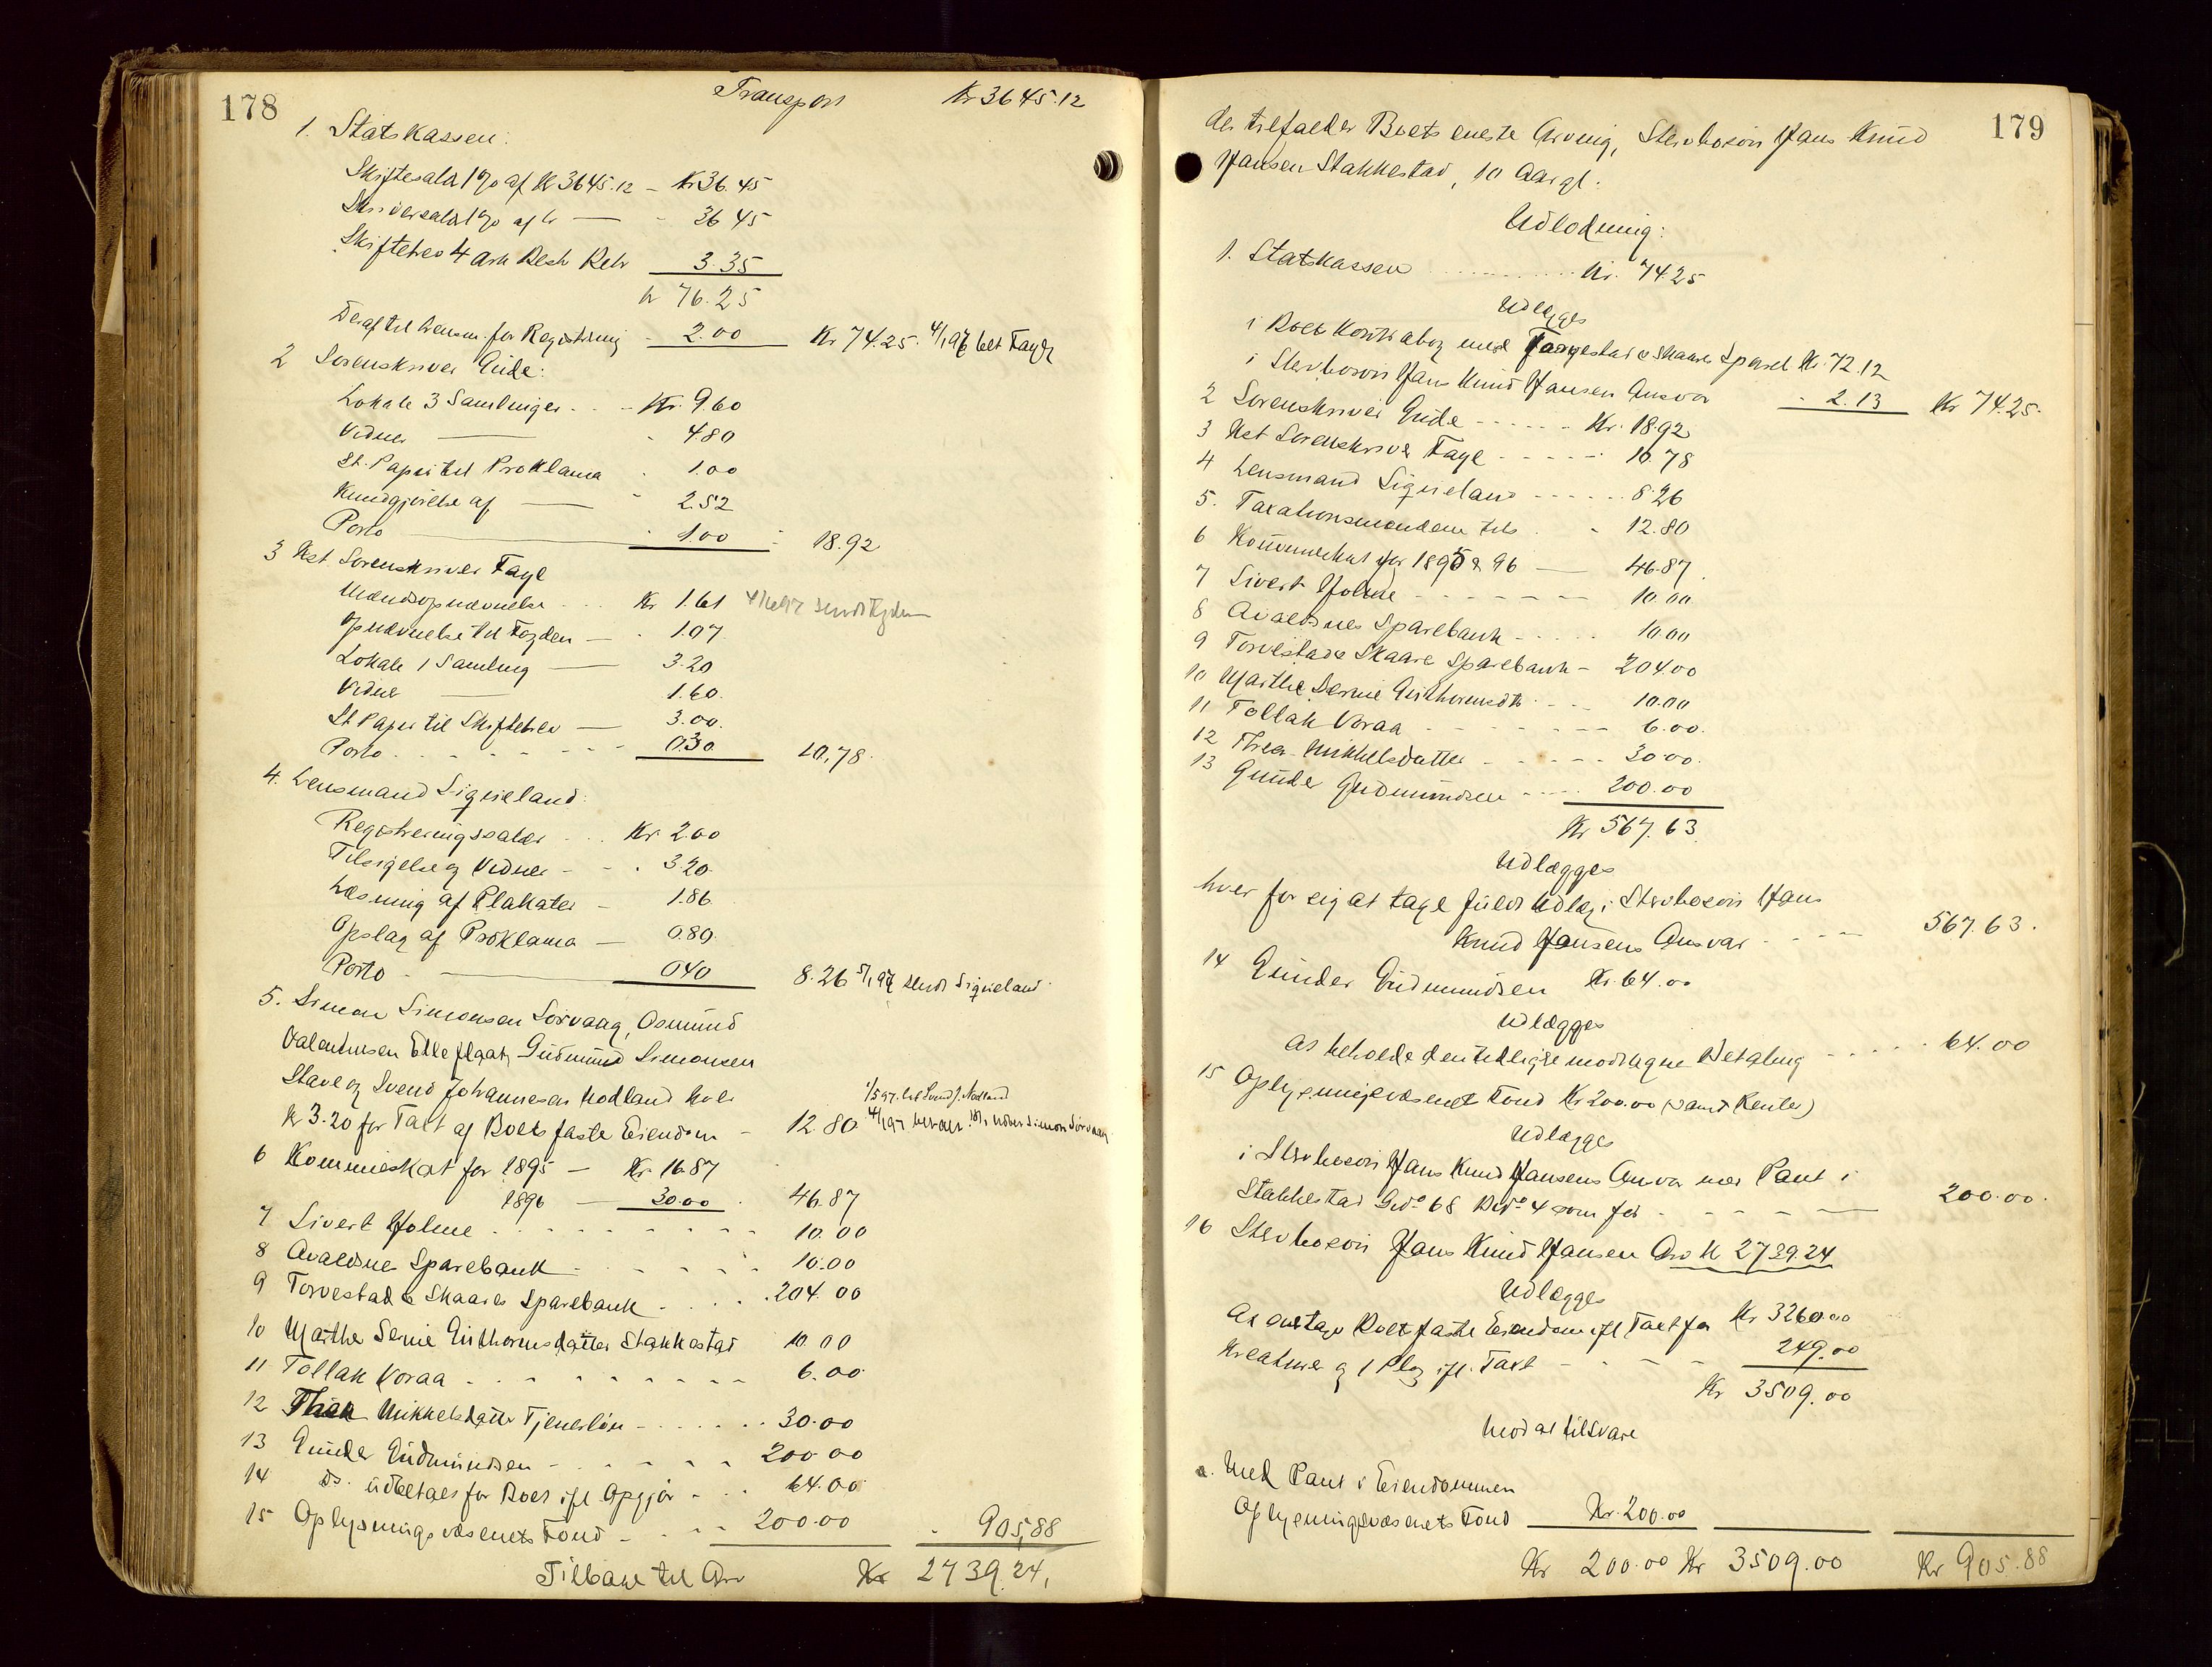 178
Transport Kr 3645.12
1. Statskassen:
Skiftesala 1% af Kr 3645.12 - Kr 36.45
Skriversala 1% af Kr — - 36 45
Skiftebrev 4 ark Besk Reb 3.35
Kr 76.25
Deraf til Lensm. for Registrering - 2.00 Kr 74.25. 4/1 97 bet Faye
2 Sorenskriver Gude:
Lokale 3 Samlinger - - - Kr. 9.60
Vidner — - 480
St. Papir til Proklama - 1.00
Kundgjørelse af — - 2.52
Porto — 1.00 - 18.92
3 Kst Sorenskriver Faye
Mændsopnævnelse - - - Kr 1.61
Opnævnelse til Fogden — - 1.07
Lokale 1 Samling — 3.20
Vidne — 1.60.
St Papir til Skiftebrev — 3.00.
Porto - - - - - 0.30 10,78.
4. Lensmand Sigveland:
Registreringssalær - - - Kr 2.00
Tilsigelse og Vidner - - - 3.20.
Læsning af Plakater - 1.86
Opslag af Proklama — 0.80.
Porto - — 040 8.26 5/1 97 sendt Sigveland.
5. Simon Simonsen Sørvaag, Osmund
Valentinsen Elleflaat, Gudmund Simonsen
Stave og Svend Johannesen Nodland hver
Kr 3.20 for Taxt af Boets faste Eiendom - 12.80
6 Kommuneskat for 1895 — Kr. 16.87
1896 — 30.00 46.87
7 Sivert Holme - - - - - 10.00
8 Avaldsnes Sparebank - - - - 10.00
9 Torvestad & Skaares Sparebank - - - - 204.00
10 Marthe Serine Guthormsdatter Stakkestad 10.00
11 Tollak Voraa - - - - - 6.00
12 Thea Mikkelsdatter Tjenerløn - - - - - 30.00
13 Gunder Gudmundsen - - - - - 200.00
14 Ds. udbetalt for Boet ifl Opgjør - - - 64.00
15 Oplysningsvæsenets Fond - - - - 200.00 - 905,88
Tilbage til Arv Kr 2739.24,
179
der tilfalder Boets eneste Arving, Stervbosøn Hans Knud
Hansen Stakkestad, 10 Aar gl.
Udlodning:
1. Statskassen - - - - - Kr. 74.25
Udlægges
i Boets Kontrabog med Torvestad & Skaares Spareb Kr. 72.12
i Stervbosøn Hans Knud Hansen Ansvar - 2.13 Kr 74.25.
2 Sorenskriver Gude - - - - - Kr. 18.92
3 Kst Sorenskriver Faye - - - - - 10.78
4 Lensmand Sigveland - - - - - 8.26
5. Taxationsmændene tils. - 12.80
6 Kommuneskat for 1895 & 96 — 46.87.
7 Sivert Holme - - - - - 10.00
8 Avaldsnes Sparebank - - - - 10.00
9 Torvestad & Skaare Sparebank - 204.00
10 Marthe Serine Guthormsdtr - - - 10.00
11 Tollak Voraa - - - - - 6.00.
12 Thea Mikkelsdatter - - - - - 30.00.
13 Gunder Gudmundsen - - - - 200.00
Kr 567.63
Udlægges
hver for sig at tage fuldt Udlæg i Stervbosøn Hans
Knud Hansens Ansvar - - - — 567.63.
14 Gunder Gudmundsen Kr. 64.00
Udlægges
at beholde den tidligere modtagne Betaling - - - - - 64.00
15 Oplysningsvæsenets Fond Kr 200.00 (samt Renter)
Udlægges
i Stervbosøn Hans Knud Hansens Ansvar med Pant i
Stakkestad Gno 68 Bno 4 som før - - - - — 200.00.
16 Stervbosøn Hans Knud Hansen Arv Kr 2739.24
Udlægges
At overtage Boets faste Eiendom ifl Taxt for Kr 3260.00
Kreaturer og 1 Plog ifl. Taxt - - - - 249.00
Kr 3509.00
mod at tilsvare
a. Med Pant i Eiendommen
Oplysningsvæsenets Fond Kr. 200.00
Kr 200.00 Kr 3509.00 Kr 905.88